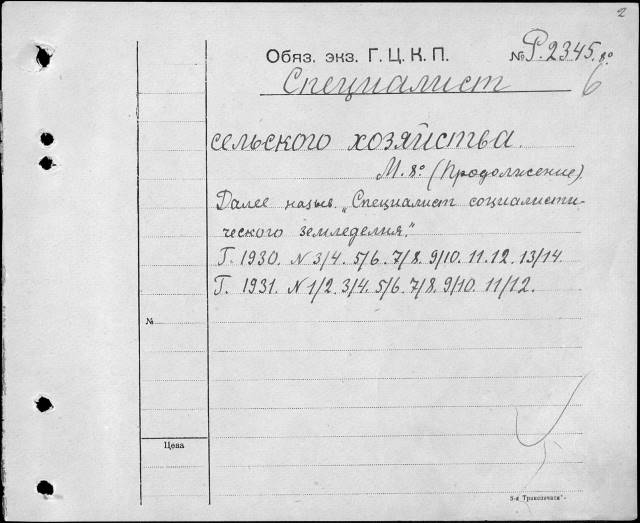 2
Обяз. экз. Г. Ц. К. П. № Р. 2345. 8º
6
Специалист
сельского хозяйства.
М. 8º (Продолжение).
Далее назыв. „Специалист социалисти-
ческого земледелия."
Г. 1930. N 3/4. 5/6. 7/8. 9/10. 11. 12. 13/14.
Г. 1931. N 1/2. 3/4. 5/6. 7/8. 9/10. 11/12.
№
Цена